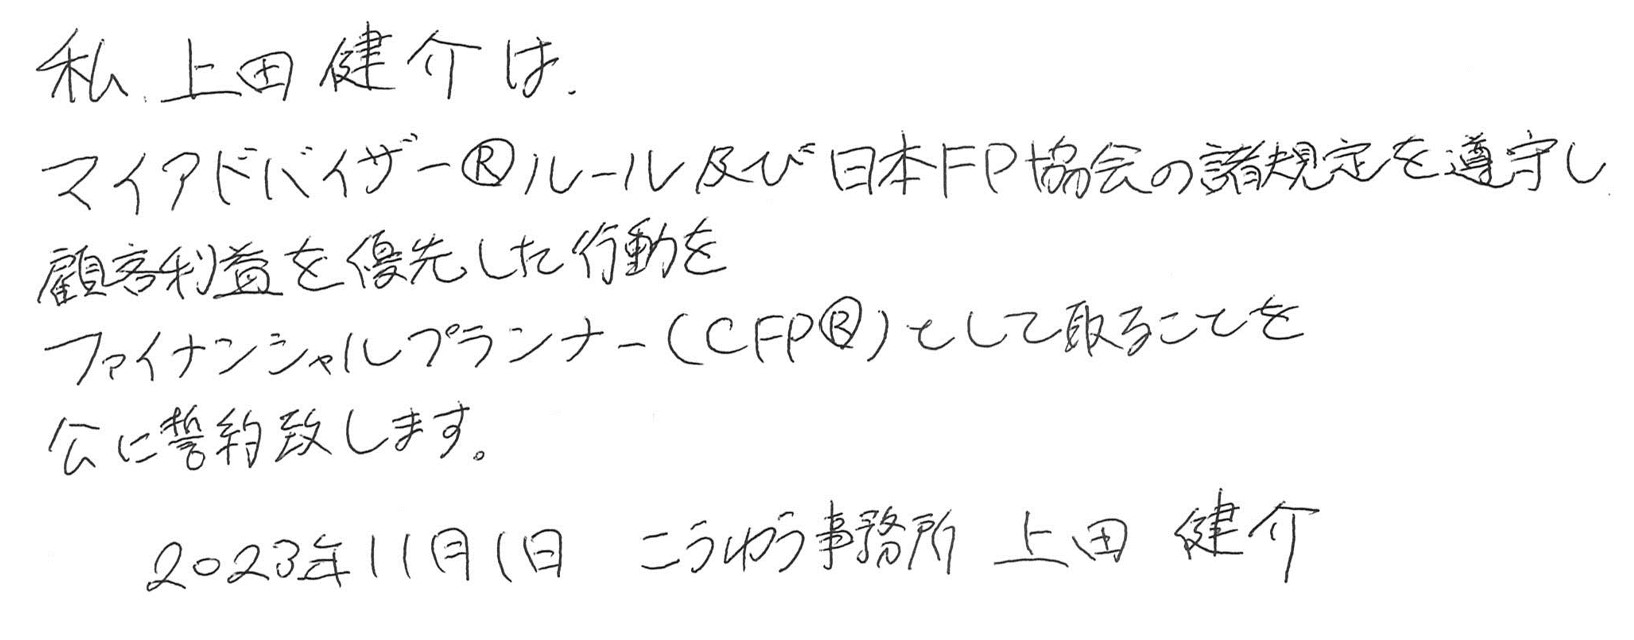 私、上田健介は、
マイアドバイザー®ルール及び日本FP協会の諸規定を遵守し
顧客利益を優先した行動を
ファイナンシャルプランナー(CFP®)として取ることを
公に誓約致します。
2023年11月1日 こうゆう事務所 上田 健介